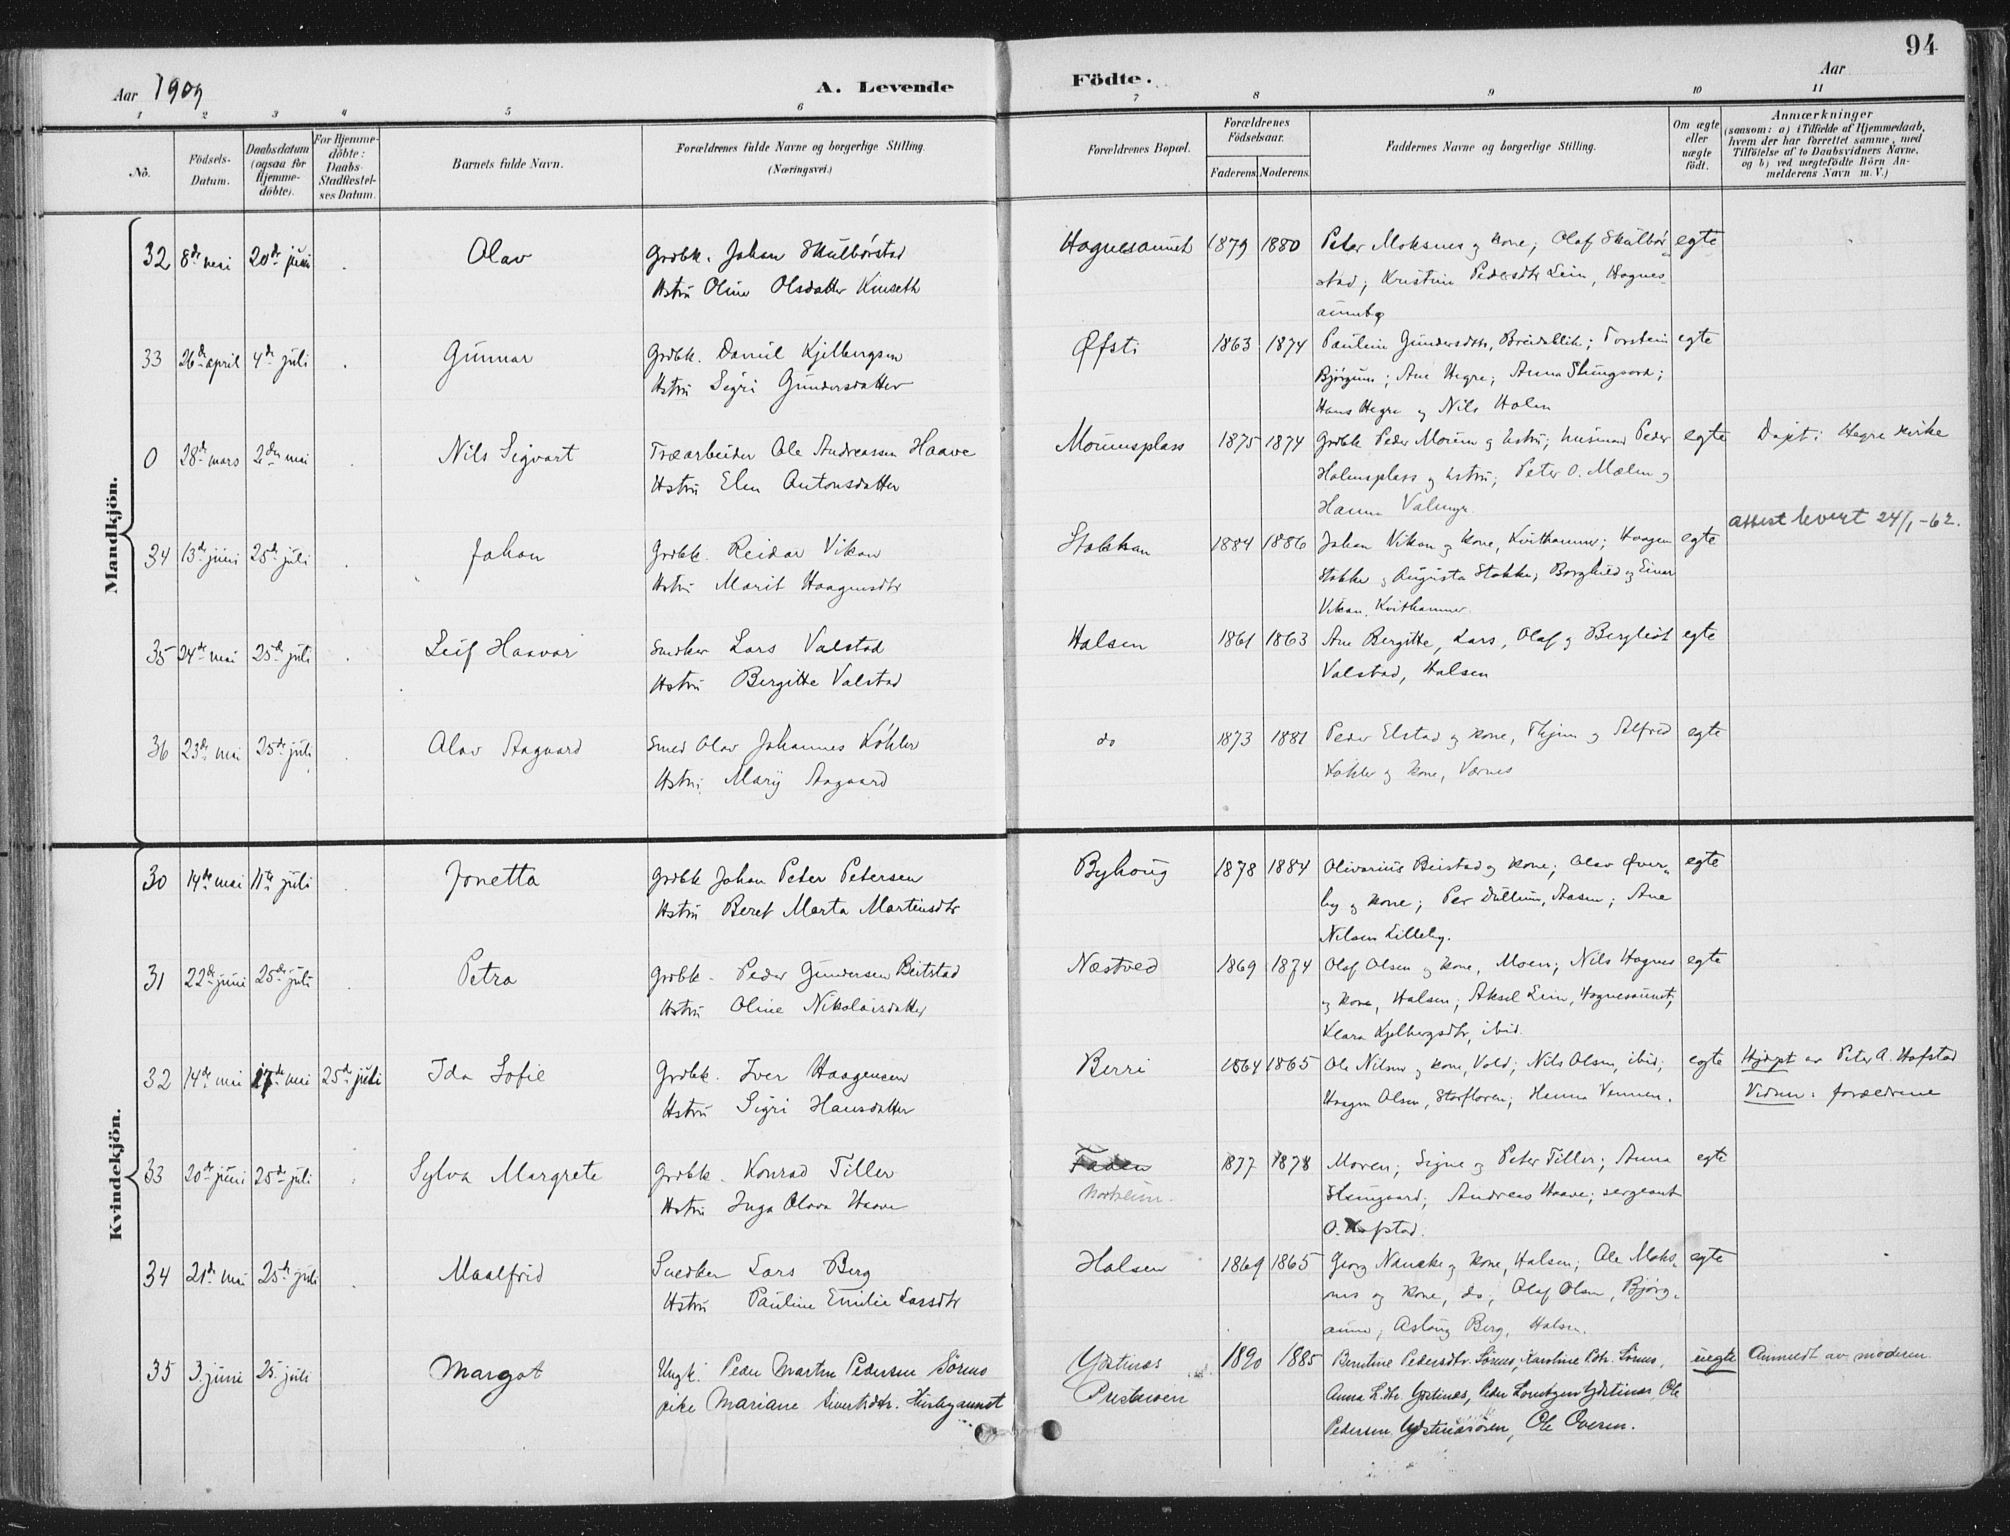 94
Aar 1909
A. Levende Födte.
Aar
1 2 3 4 5 6 7 8 9 10 11
No.
Födsels-Datum.
Daabsdatum (ogsaa for Hjemme-döbte).
For Hjemme-döbte: Daabs-Stadfæstel-ses Datum.
Barnets fulde Navn.
Forældrenes fulde Navne og borgerlige Stilling.
(Næringsvei.)
Forældrenes Bopæl.
Forældrenes Födselsaar.
Faderens. Moderens.
Faddernes Navne og borgerlige Stilling.
Om ægte eller uægte födt.
Anmærkninger
(saasom: a) i Tilfælde af Hjemmedaab, hvem der har forrettet samme, med Tilföielse af to Daabsvidners Navne, og b) ved uægtefödte Börn An-melderens Navn m. V.)
Mandkjön.
32 8de mai 20de juni Olav Grdbk. Johan Skulbørstad Hognesaunet 1879 1880 Peter Moksnes og kone; Olaf Skulbør- egte
Hstru Oline Olsdatter Kinseth stad; Kristine Pedersdtr Lein, Hognes-
aunet
33 26de april 4de juli Gunnar Grdbk. Daniel Kjelbergsen Øfsti 1863 1874 Pauline Gundersdtr, Breidablik; Torstein egte
Hstru Sigri Gundersdatter Bjørgum; Ane Hegre; Anna
Hans Hegre og Nils Holen
0 28de mars 2den mai Nils Sigvart Træarbeider Ole Andreassen Haave Mourusplass 1875 1874 Grdbk Peder Moum og hstru; husmand Peder egte Døpt i Hegre kirke
Hstru Elen Antonsdatter Holmsplass og hstru; Peter O. Mælen og
Hanna
attest levert 24/1-62.
34 13de juni 25de juli Johan Grdbk. Reidar Vikan Stokkan 1884 1886 Johan Vikan og kone, Kvithammer; Haagen egte
Hstru Marit Haagensdtr Stokke og Augusta Stokke; Borghild og Einar
Vikan, Kvithammer.
35 24de mai 25de juli Leif Haavar Snedker Lars Valstad Halsen 1861 1863 Ane Bergitte, Lars, Olaf og Bergliot egte
Hstru Bergitte Valstad Valstad, Halsen
36 23de mai 25de juli Olav Aagaard Smed Olav Johannes Köhler do 1873 1881 Peder Elstad og kone, og Alfred egte
Hstru Marij Aagaard Köhler og kone, Værnes
Kvindekjön.
30 14de mai 11te juli Jonetta Grdbk Johan Peter Petersen Byhoug 1878 1884 Olivarius Beistad og kone; Olav Øver- egte
Hstru Beret Marta Martinsdtr by og kone; Per Dullum, Aasen; Ane
Nilsen Lilleby.
31 22de juni 25de juli Petra Grdbk. Peder Gundersen Beitstad Næstved 1869 1874 Olaf Olsen og kone, Moen; Nils Hognes egte
Hstru Oline Nikolaisdatter og kone, Halsen; Aksel Lein, Hognesaunet;
Klara Kjelbergsdtr, ibid.
32 14de mai 17de mai 25de juli Ida Sofie Grdbk. Iver Haagensen Berri 1864 1865 Ole Nilsen og kone, Vold; Nils Olsen, ibid; egte Hjdøpt av Peter A. Hofstad
Hstru Sigri Hansdatter Haagen Olsen, Storfloren; Hanna Vennen. Vidner: forældrene
33 20de juni 25de juli Sylva Margrete Grdbk. Konrad Tiller Faden 1877 1878 Moren; Signe og Peter Tiller; Anna egte
Hstru Inga Olava Haave Andreas Haave; sergeant
O. Hofstad.
34 21de mai 25de juli Maalfrid Snedker Lars Berg Halsen 1869 1865 Georg Nauske og kone, Halsen; Ole Moks- egte
Hstru Pauline Emilie Larsdtr nes og kone, do; Olaf Olsen, Bjørg-
aune; Aslaug Berg, Halsen.
35 3. juni 25. juli Margot Ungk. Peder Martin Pedersen Sörmo Ydstines 1890 1885 Berntine Pedersdtr. Sörmo, Karoline Pdtr. Sörmo, uegte Anmeldt av moderen
pike Mariane Sivertsdtr. Husbyaunet Prestmoen Anna L.dtr. Ydstines, Peder Lorntzen Ydstines Ole
Pedersen Ydstinesören, Ole Overen.